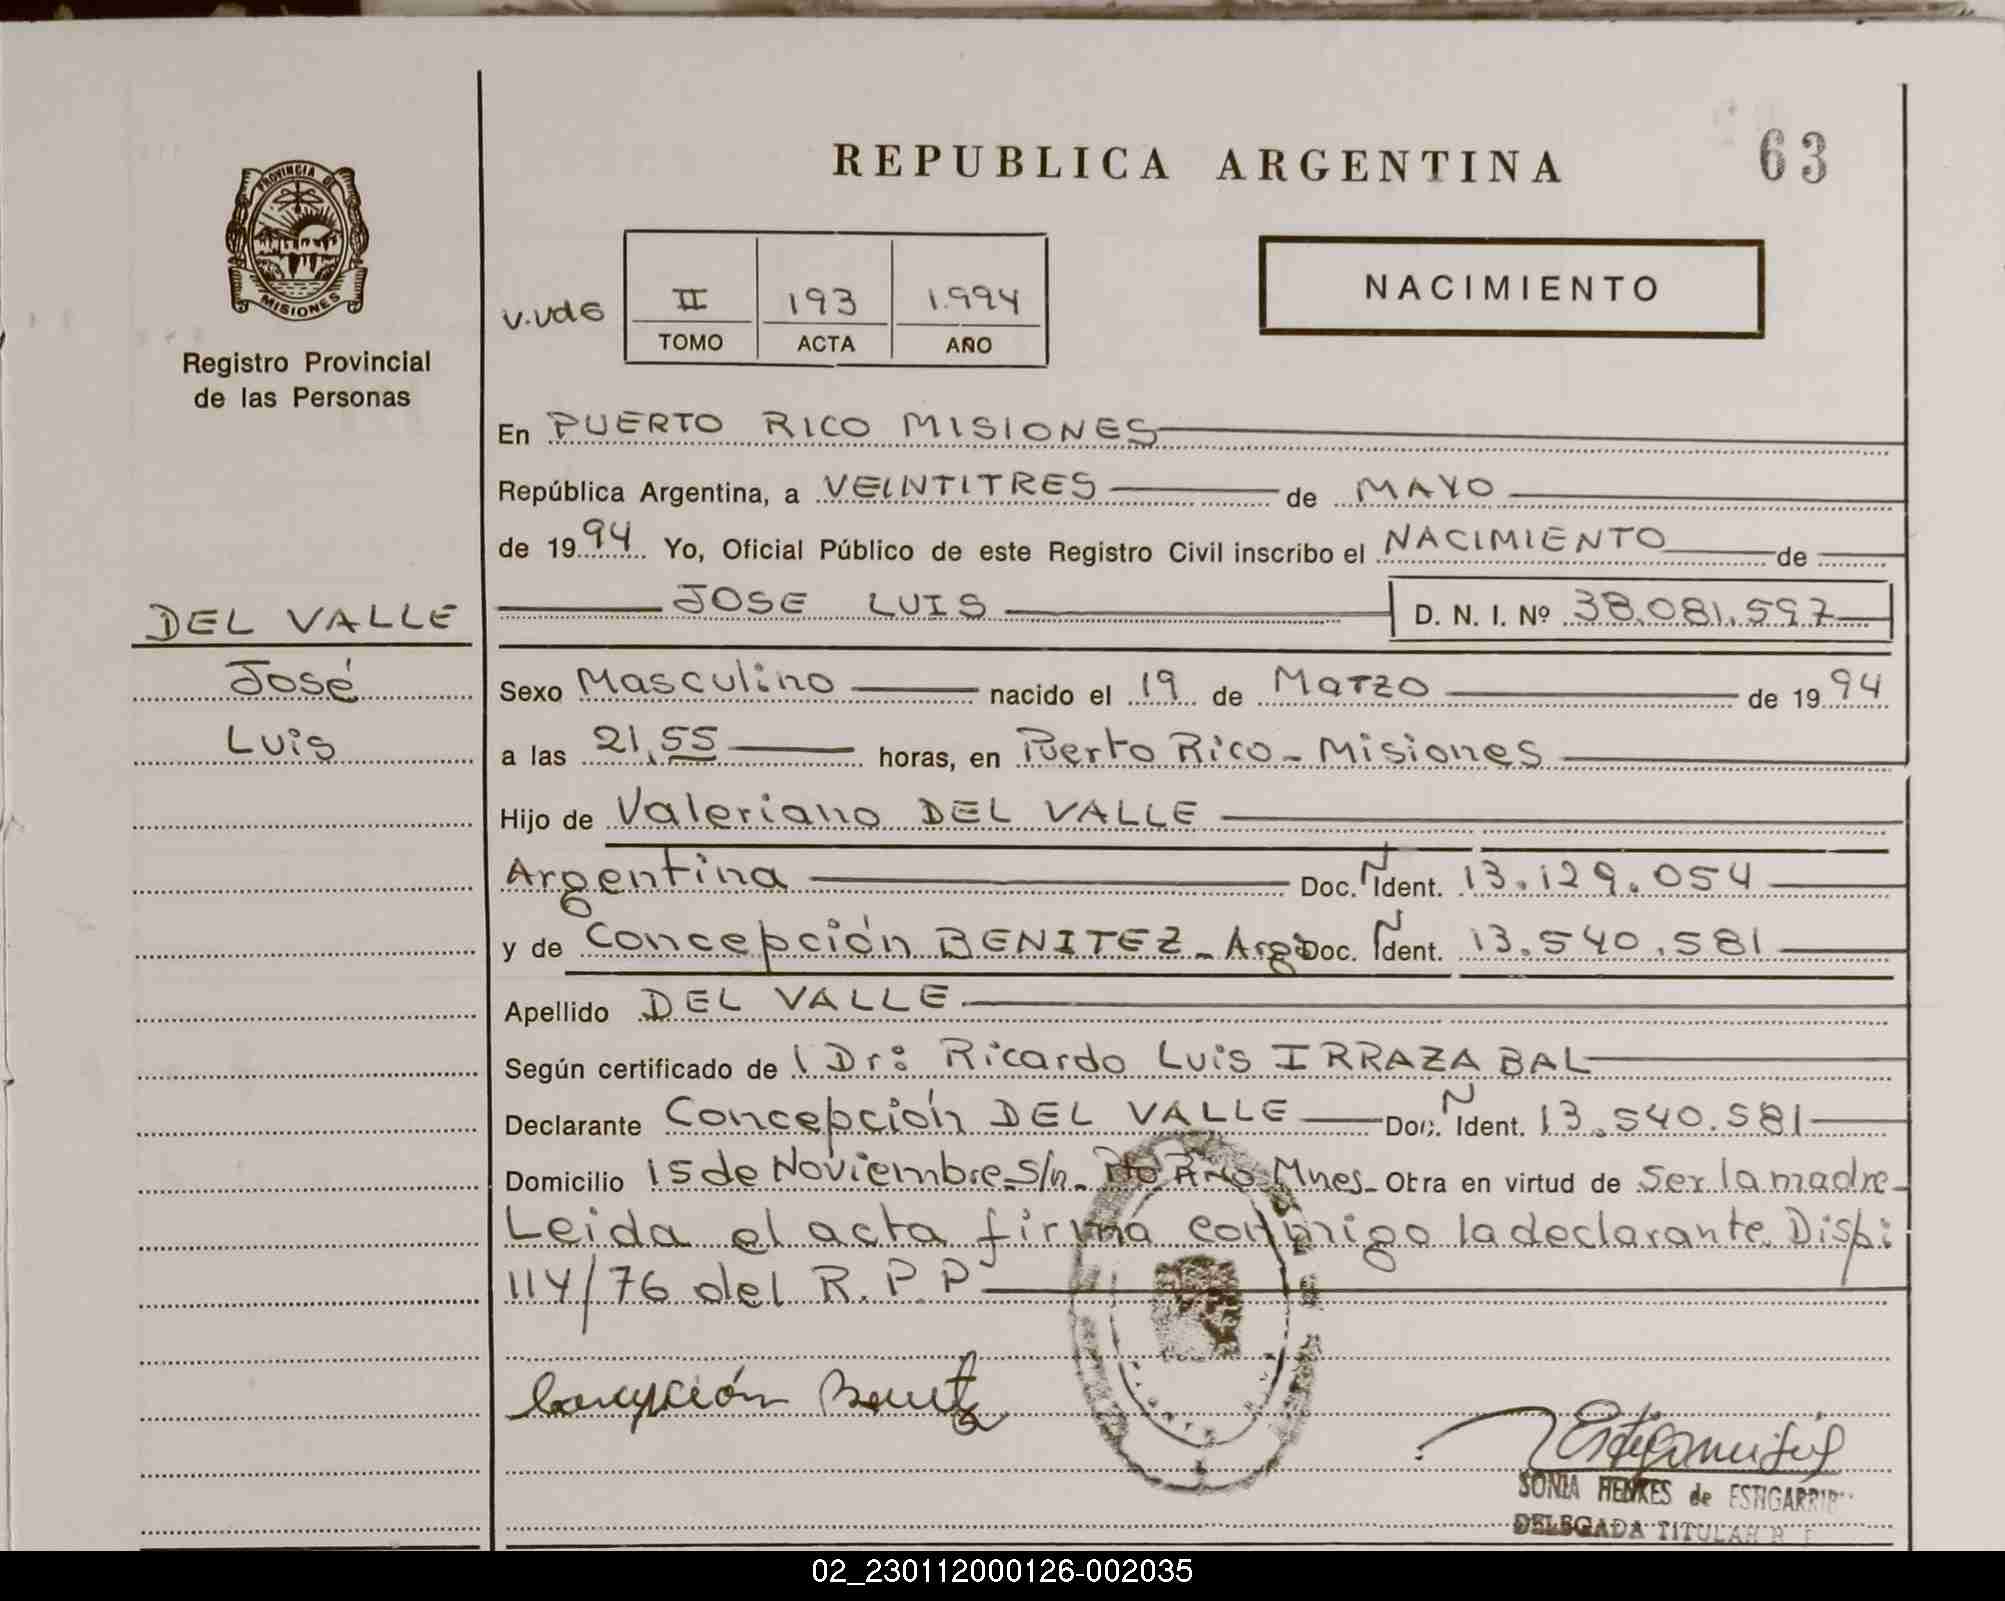 REPUBLICA ARGENTINA
63
PROVINCIA DE
MISIONES
Registro Provincial
de las Personas
II 193 1.994
TOMO ACTA AÑO
NACIMIENTO
En PUERTO RICO MISIONES
República Argentina, a VEINTITRES de MAYO
de 1994 Yo, Oficial Público de este Registro Civil inscribo el NACIMIENTO de
JOSE LUIS D. N. I. Nº 38.081.597
DEL VALLE
José
Luis
Sexo Masculino nacido el 19 de Marzo de 1994
a las 21,55 horas, en Puerto Rico - Misiones
Hijo de Valeriano DEL VALLE
Argentina Doc. N Ident. 13.129.054
y de Concepción BENITEZ - Arg. Doc. N Ident. 13.540.581
Apellido DEL VALLE
Según certificado de Dr: Ricardo Luis IRRAZABAL
Declarante Concepción DEL VALLE Doc. N Ident. 13.540.581
Domicilio 15 de Noviembre S/n. Pto Rico Mnes. Obra en virtud de Ser la madre
Leida el acta firma conmigo la declarante. Disp:
114/76 del R.P.P
Concepción Benitez
SONIA HENKES de ESTIGARRIB
DELEGADA TITULAR
02_230112000126-002035